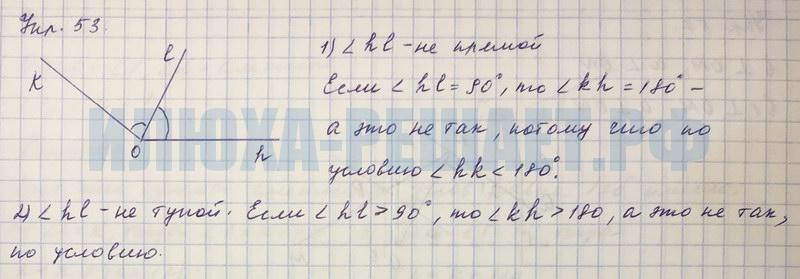 Упр. 53.
K
l
O
h
1) ∠hl - не прямой
Если ∠hl = 90°, то ∠kh = 180° -
а это не так, потому что по
условию ∠hk < 180°.
2) ∠hl - не тупой. Если ∠hl > 90°, то ∠kh > 180, а это не так,
по условию.
ИЛЮХА-РЕШАЕТ.РФ